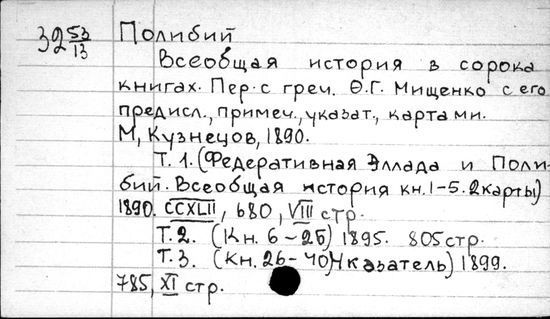 32 53/13 Полибий
Всеобщая история в сорока
книгах. Пер. с греч. Ѳ.Г. Мищенко с его
предисл., примеч., указат., картами.
М, Кузнецов, 1890.
Т. 1. (Федеративная Эллада и Поли-
бий. Всеобщая история кн. 1-5. 2 карты)
1890. CCXLII, 680, VIII стр.
Т. 2. (Кн. 6-25) 1895. 805 стр.
Т. 3. (Кн. 26-40) Указатель) 1899.
785, XI стр.